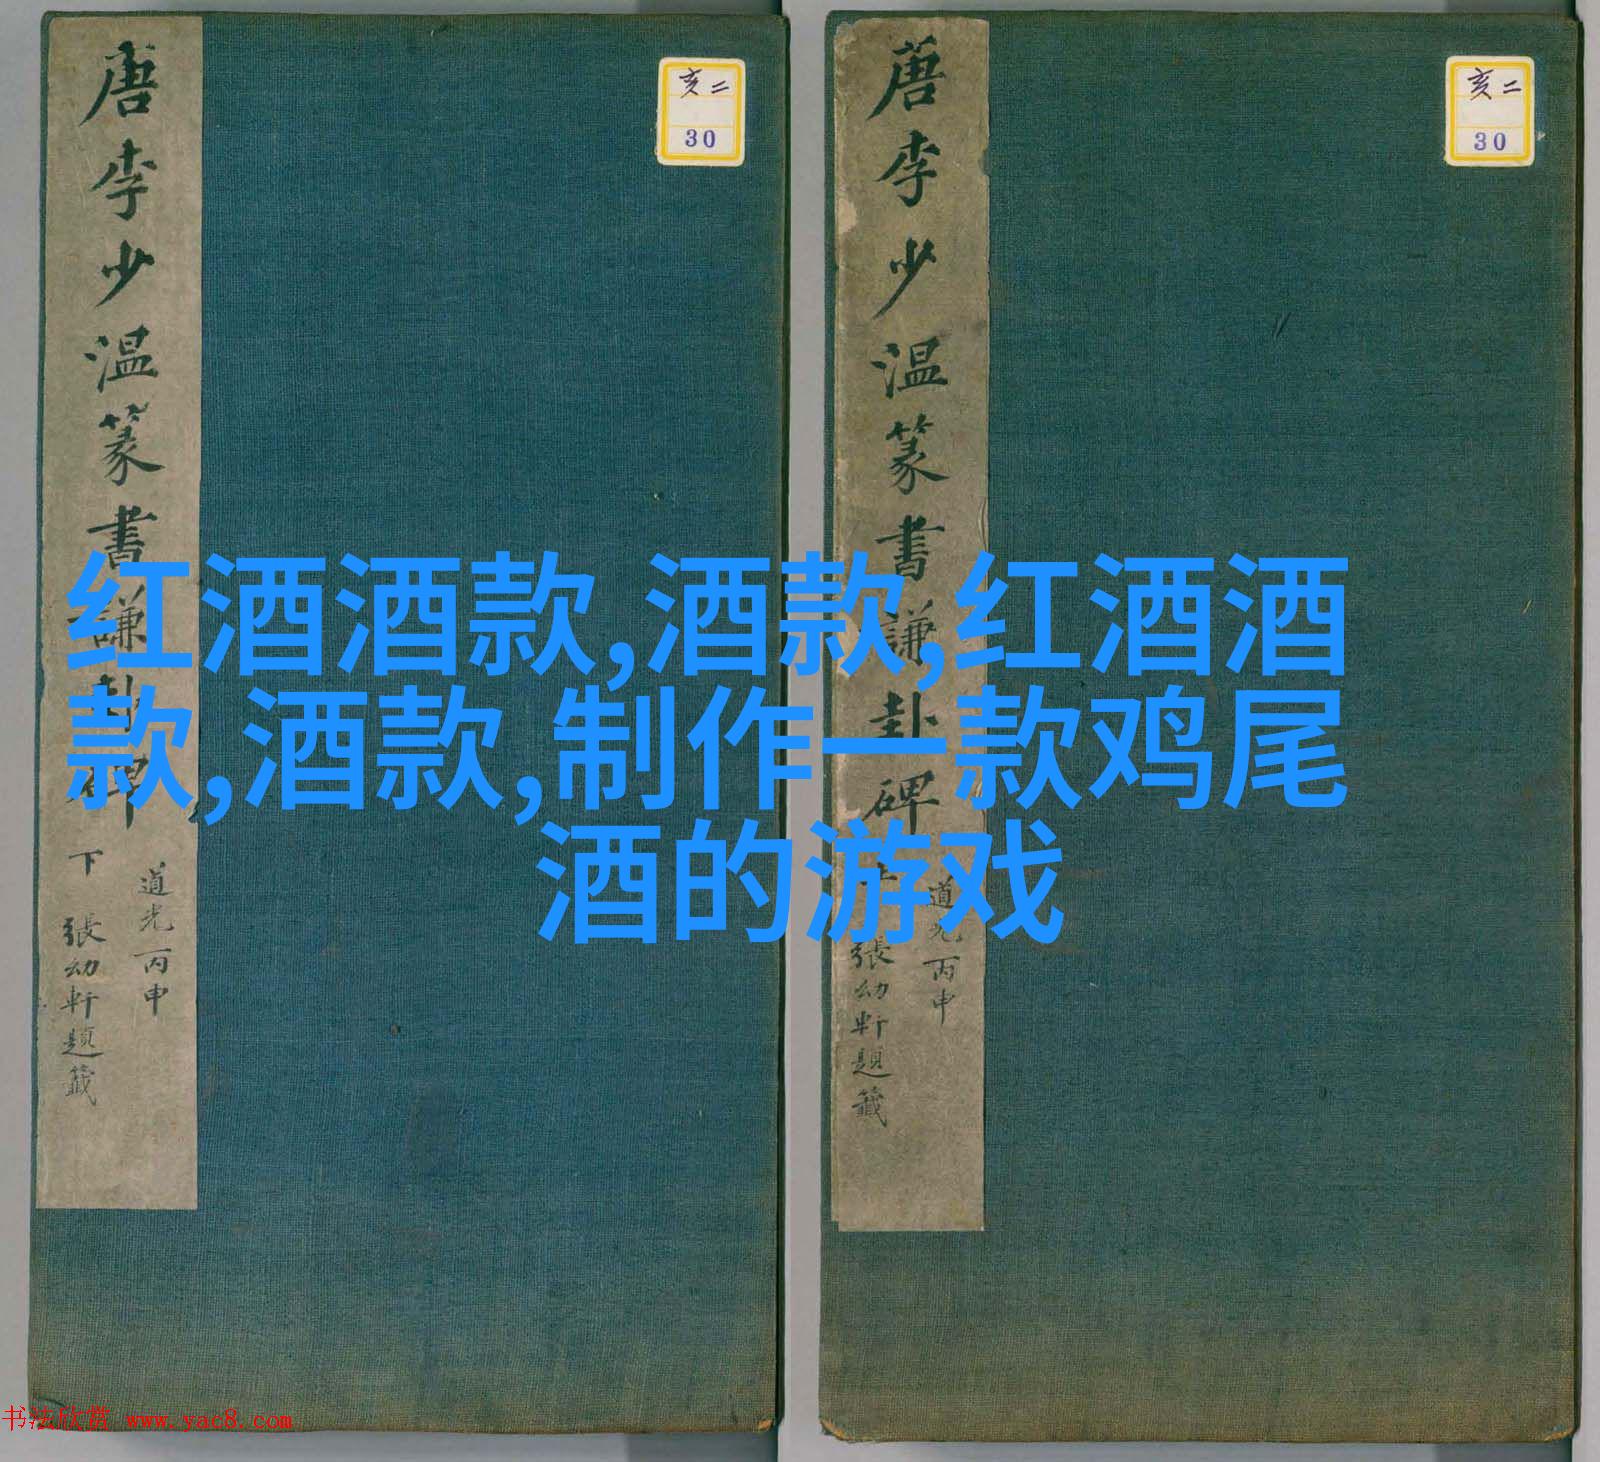 唐李少温篆書謙卦碑 下
道光丙申
張幼軒題籤
亥二
30
唐李少温篆書謙卦碑 上
道光丙申
張幼軒題籤
亥二
30
红酒酒款,酒款,红酒酒
款,酒款,制作一款鸡尾
酒的游戏
书法欣赏 www.yac8.com